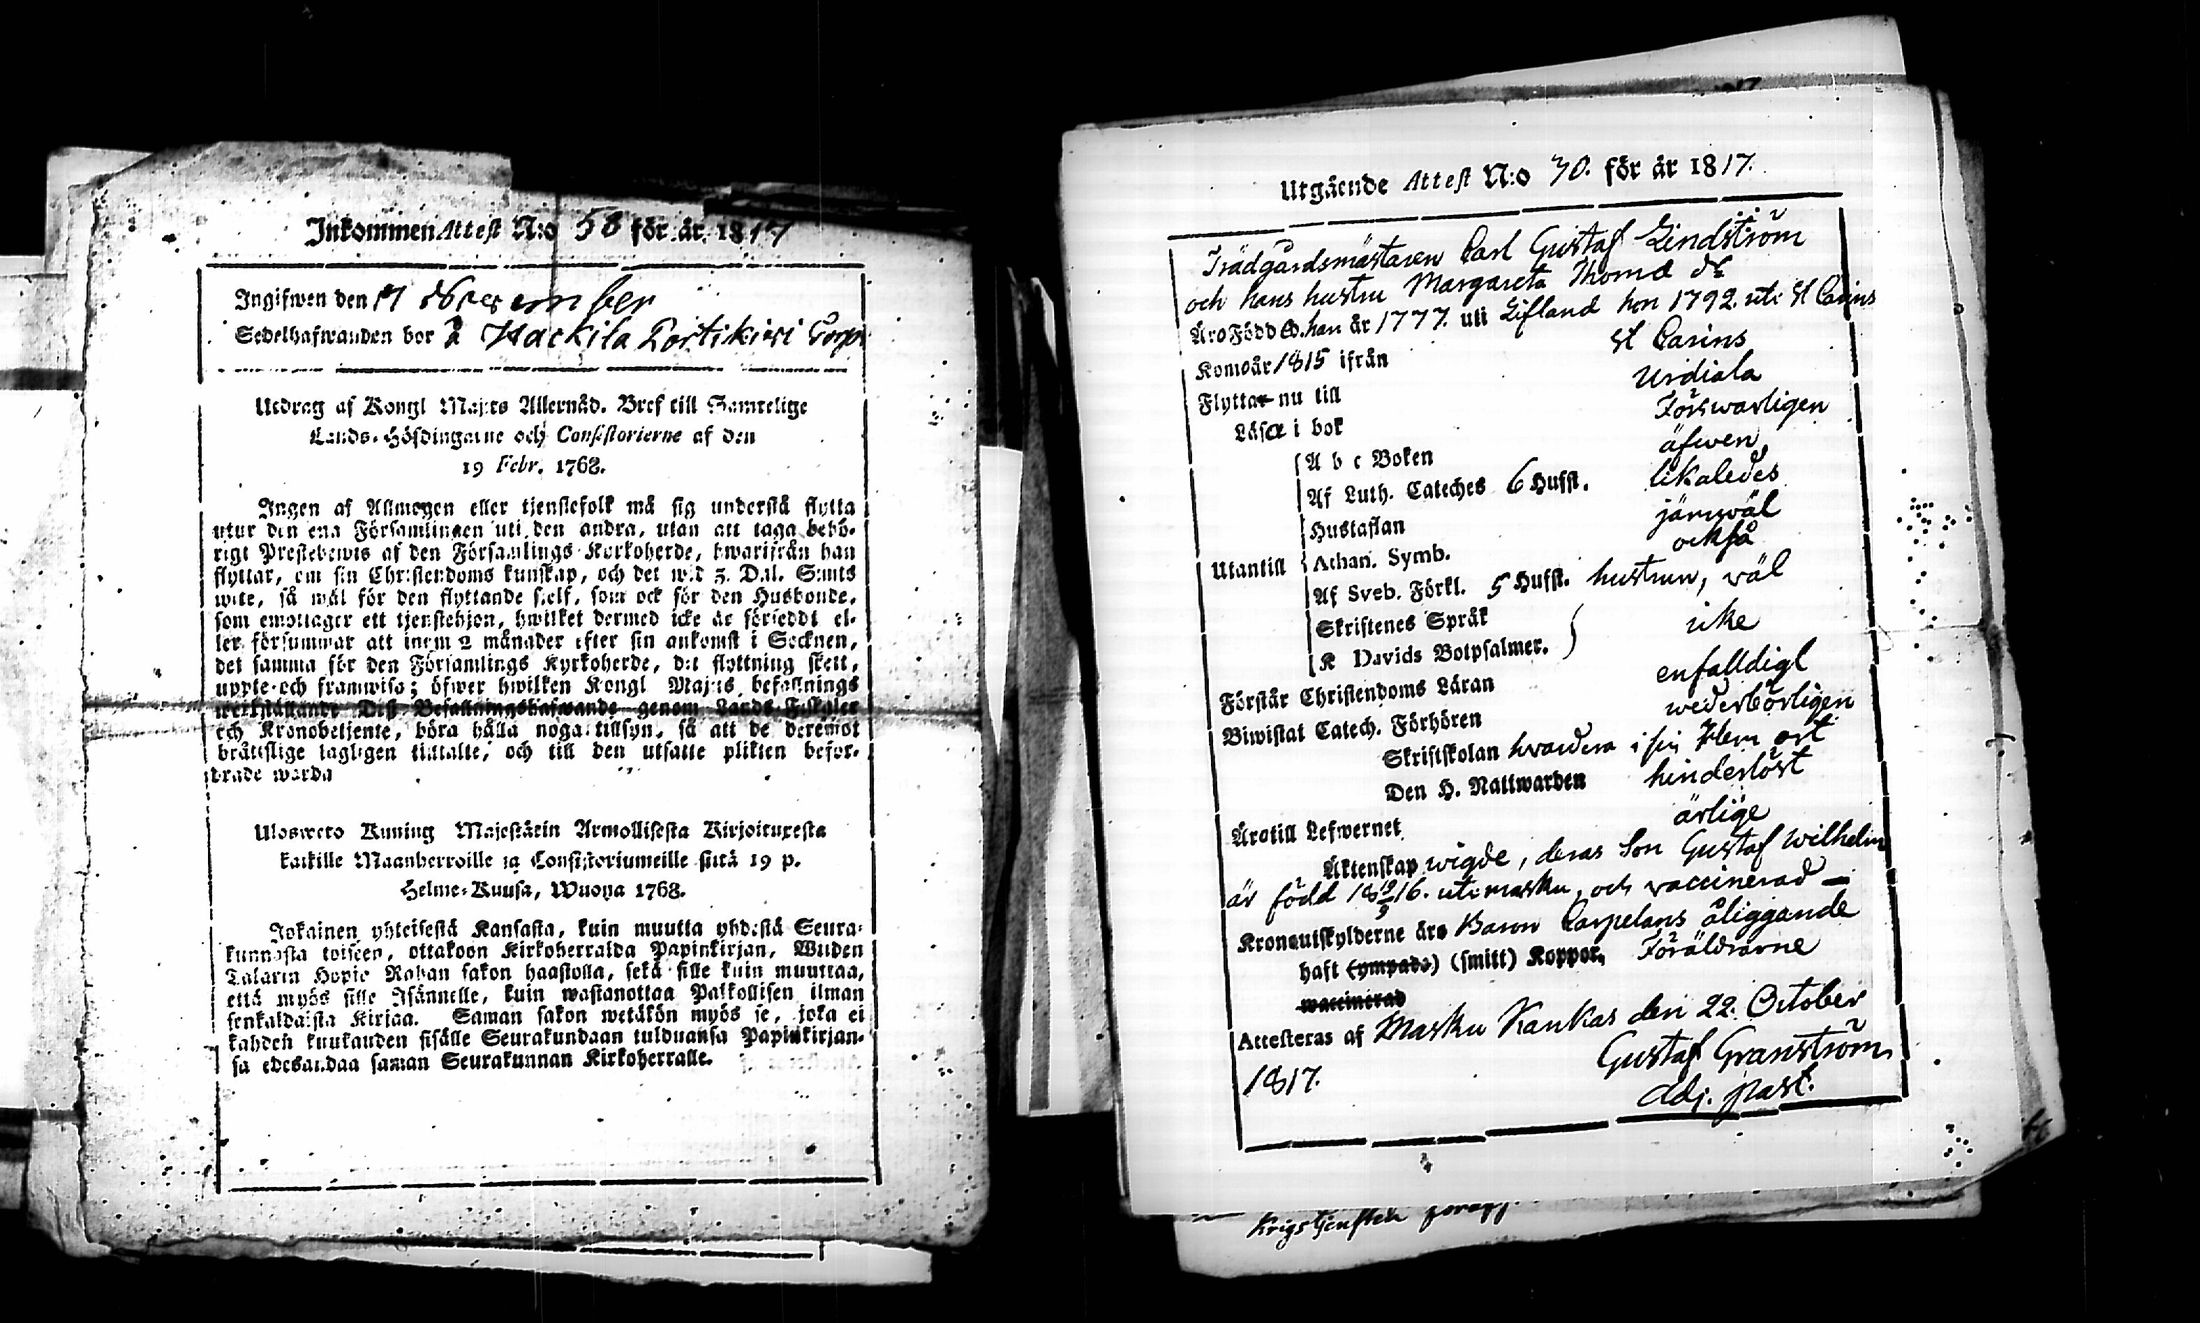 Inkommen Attest N:o 58 för år 1817
Ingifwen den 17 November
Sedelhafwanden bor å Hackila Torp
Utdrag af Kongl Maj:ts Allernåd. Bref till Samtelige
Lands-Höfdingarne och Consistorierne af den
19 Febr. 1768.
Ingen af Allmogen eller tjenstefolk må sig understå flytta
utur den ena Församlingen uti den andra, utan att taga behö-
rigt Prestebewis af den Församlings Kyrkoherde, hwarifrån han
flyttar, om sin Christendoms kunskap, och det wid 3. Dal. Smts
wite, så wäl för den flyttande sjelf, som ock för den Husbonde,
som emottager ett tjenstehjon, hwilket dermed icke är försedt el-
ler försummar att inom 2 månader efter sin ankomst i Socknen,
det samma för den Församlings Kyrkoherde, dit flyttning skett,
uppte och framwisa; öfwer hwilken Kongl Maj:ts befallnings
werkställande Dess Befallningshafwande genom Lands-Fiskaler
och Kronobetjente, böra hålla noga tillsyn, så att de deremot
bråttslige lagligen tilltalte, och till den utsatte plikten befor-
drade warda
Ulosweto Kuning Majestätin Armollisesta Kirjoituxesta
kaikille Maanherroille ja Consistoriumeille siitä 19 p.
Helme-Kuusa, Wuonna 1768.
Jokainen yhteisestä Kansasta, kuin muutta yhdestä Seura-
kunnasta toiseen, ottakoon Kirkoherralda Papinkirjan, Wiiden
Talarin Hopie Rahan sakon haastolla, sekä sille kuin muuttaa,
että myös sille Isännelle, kuin wastanottaa Palkollisen ilman
senkaldaista Kirjaa. Saman sakon wetäkön myös se, joka ei
kahden kuukauden sisälle Seurakundaan tulduansa Papinkirjan-
sa edesandaa saman Seurakunnan Kirkoherralle.
Utgående Attest N:o 70. för år 1817.
Trädgårdsmästaren Carl Gustaf Lindström
och hans hustru Margareta Thomæ dr
Äro Född @. han år 1777. uti Lifland hon 1792. uti St Carins
Kom år 1815 ifrån St Carins
Flytta nu till Urdiala
Läsa i bok Förswarligen
A b c Boken äfwen
Af Luth. Cateches 6 Hufst. likaledes
Hustaflan jämwäl
Utantill Athan. Symb. också
Af Sveb. Förkl. 5 Hufst. hustrun, wäl
Skriftenes Språk
K Davids Botpsalmer. icke
Förstår Christendoms Läran enfalldigt
Biwistat Catech. Förhören wederbörligen
Skriftskolan hvardera i sin Hem ort
Den H. Nattwarden hinderlöst
Äro till Lefwernet ärlige
Äktenskap wigde, deras Son Gustaf Wilhelm
är född 18 19/9 16. uti masku, och vaccinerad
Kronoutskylderne äro Baron Carpelans åliggande
haft (ympade) (smitt) Koppor, Föräldrarne
waccinerad
Attesteras af Masku Kankas den 22. October
1817. Gustaf Granström
Adj. past.
Krigstjensten